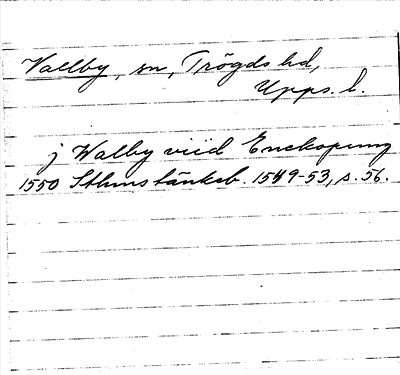 Vallby, sn, Trögds hd,
Upps. l.
j Walby viid Enekopung
1550 Sthms tänkeb. 1549-53, s. 56.